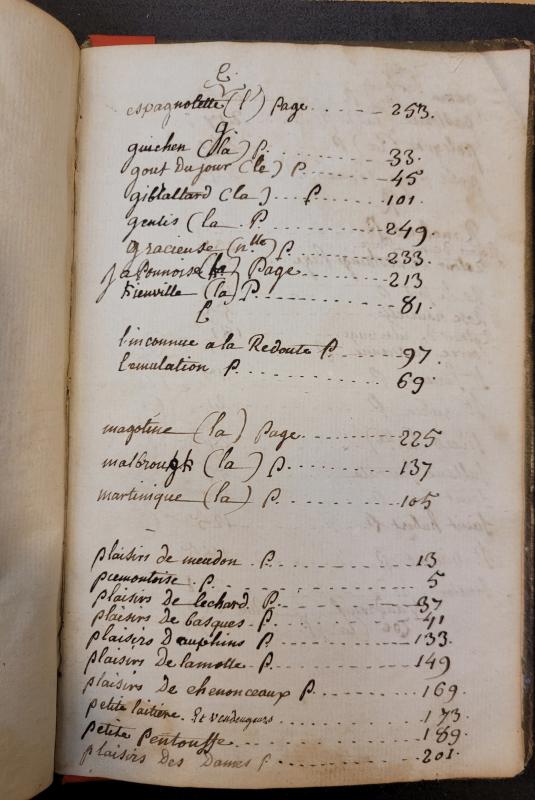 E.
espagnolette (l') page ..... 253.
g.
guichen (la) P. ..... 33.
gout du jour (le) P ..... 45
gibraltard (la) ... P. ..... 101.
genlis (la P. ..... 249
gracieuse (nlle) P. ..... 233.
japonnoise (la) Page ..... 213
kienville (la) P. ..... 81.
L
l'inconnue a la Redoute P. ..... 97
l'emulation P. ..... 69.
magotine (la) page ..... 225
malbrough (la) P. ..... 137
martinique (la) P. ..... 105
plaisirs de meudon . P. ..... 13
piemontoise P. ..... 5
plaisirs de lechard. P. ..... 37
plaisirs de basques . P. ..... 41
plaisirs Dauphins P. ..... 133.
plaisirs De lamotte . P. ..... 149
plaisirs De chenonceaux P. ..... 169.
petite laitiere. Et vendengeurs ..... 173.
petite Pentouffe ..... 189.
plaisirs Des Dames P ..... 201.